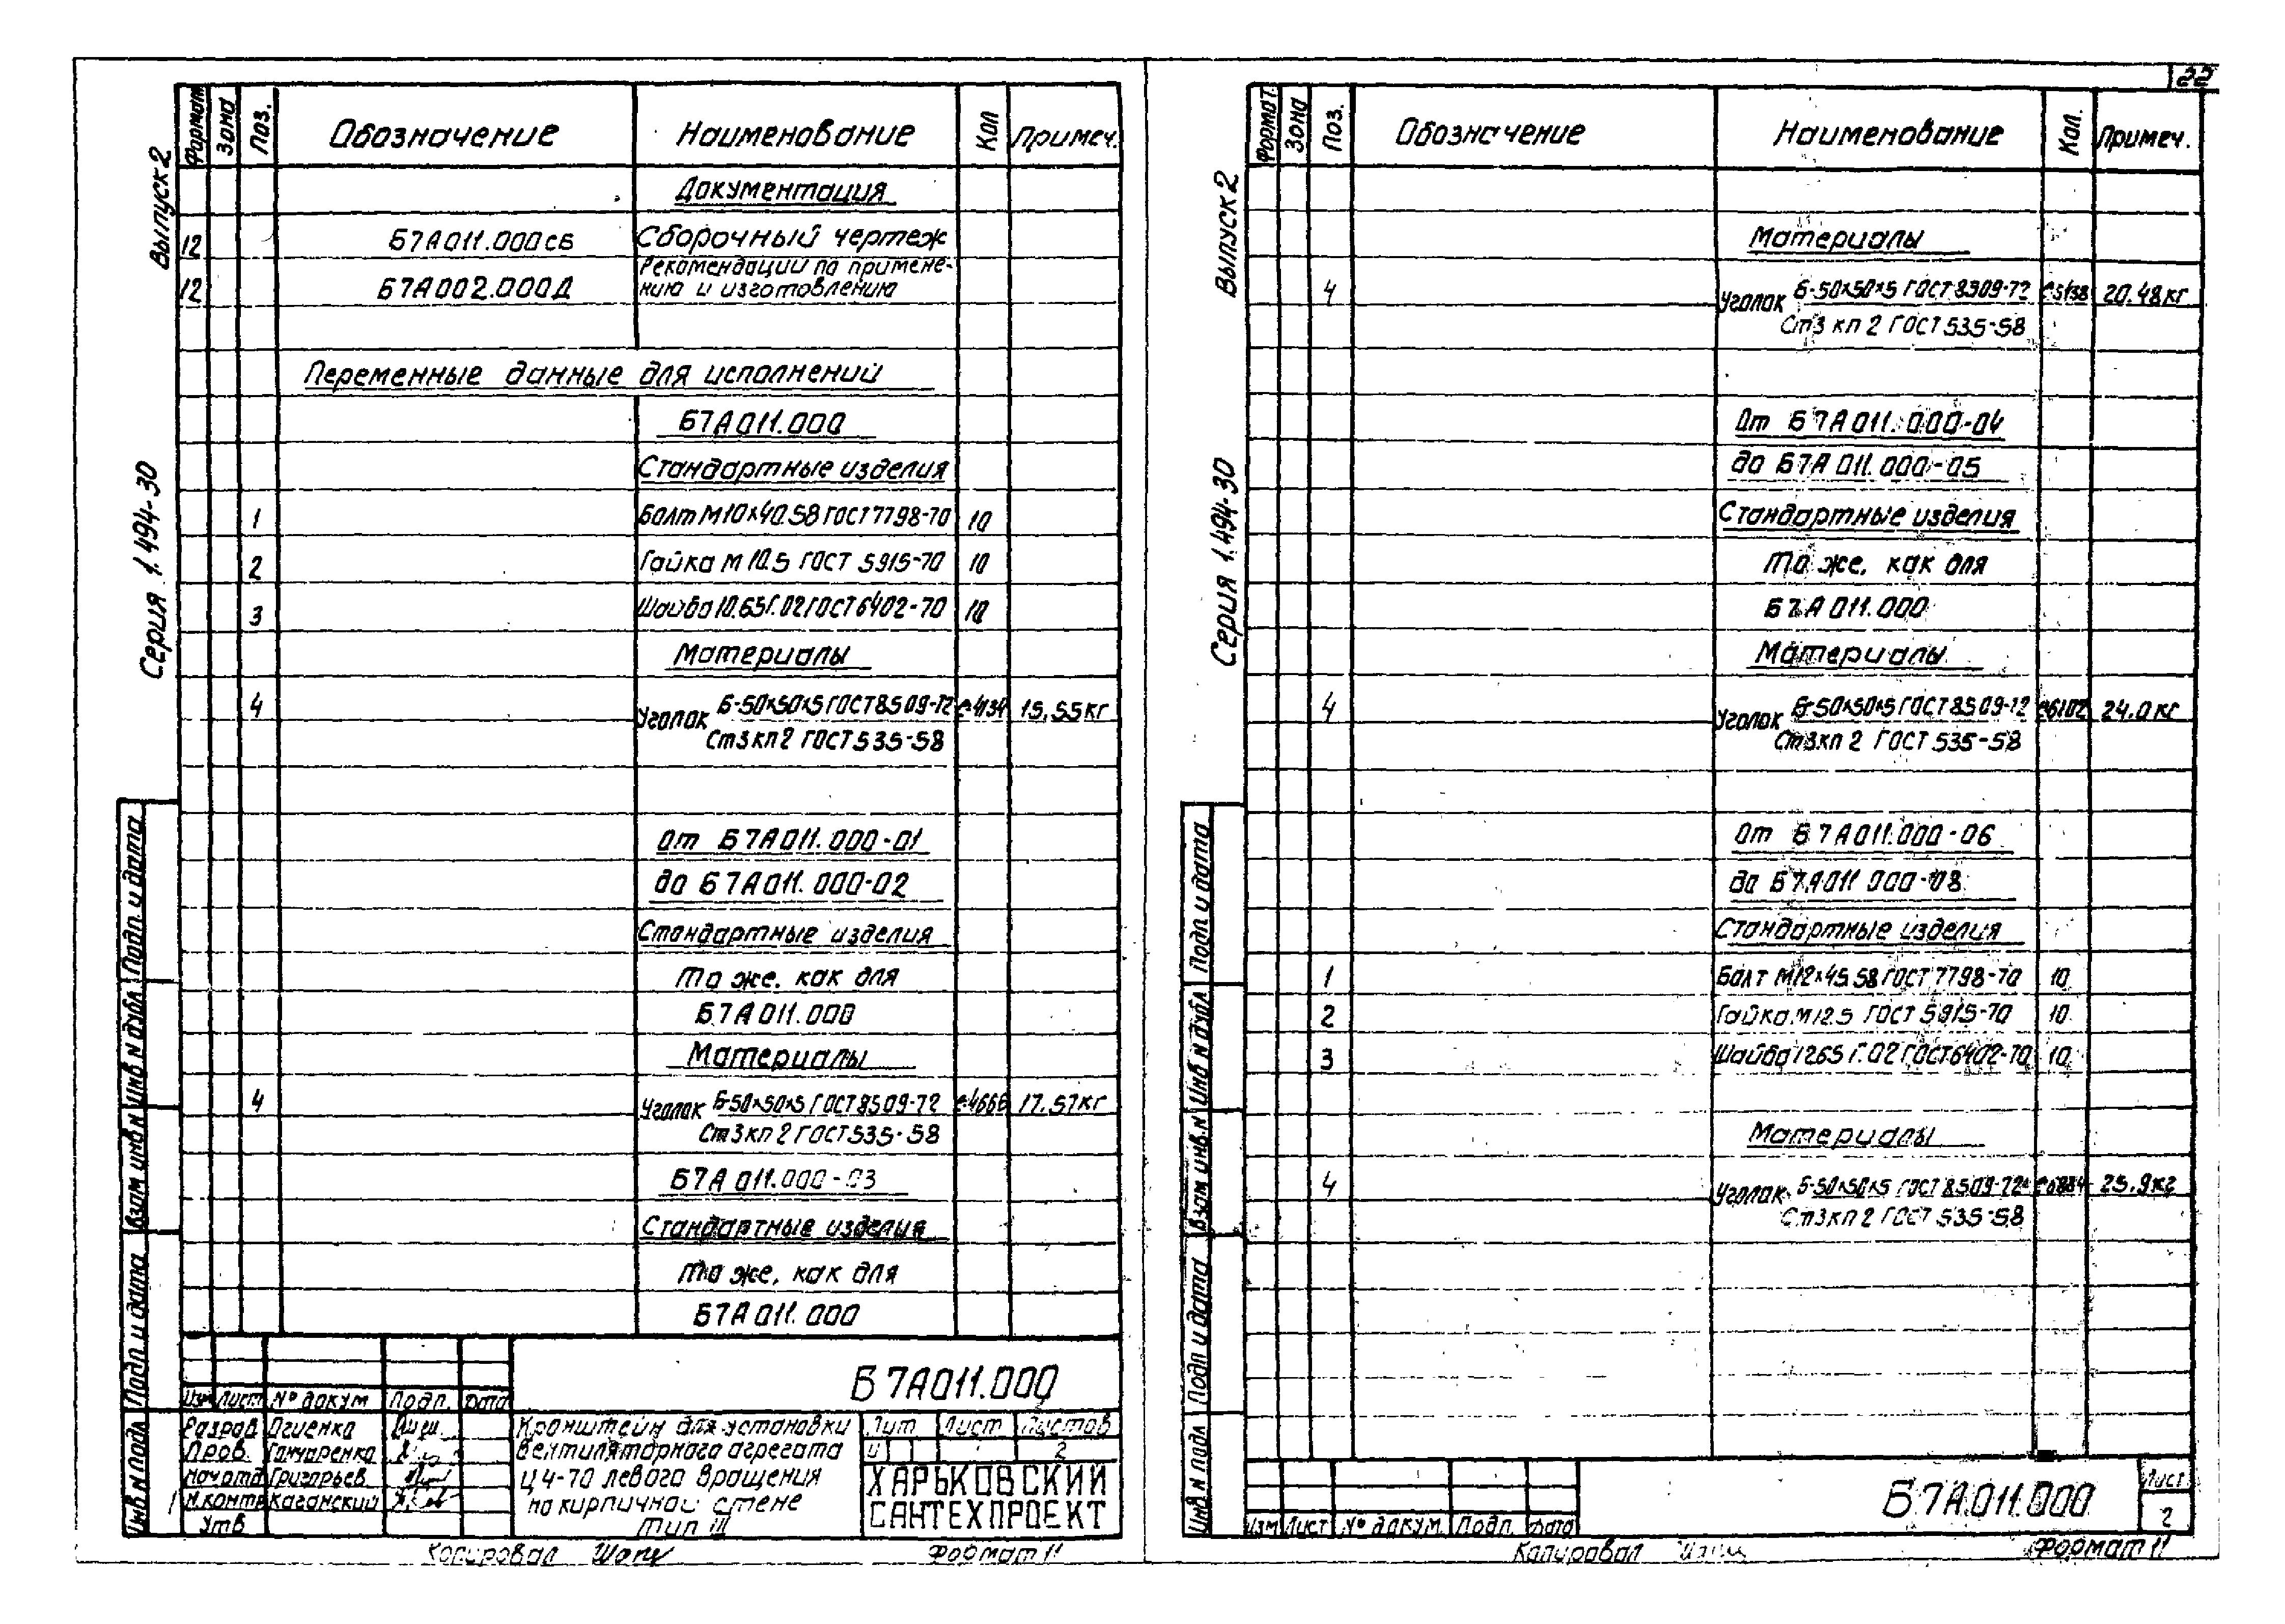 22
Выпуск 2
Серия 1.494-30
Формат Зона Поз. Обозначение Наименование Кол Примеч.
Документация
12 Б7А011.000СБ Сборочный чертеж
Рекомендации по примене-
12 Б7А002.000Д нию и изготовлению
Переменные данные для исполнений
Б7А011.000
Стандартные изделия
1 Болт М10×40.58 ГОСТ 7798-70 10
2 Гайка М10.5 ГОСТ 5915-70 10
3 Шайба 10.65Г.02 ГОСТ 6402-70 10
Материалы
4 Уголок Б-50×50×5 ГОСТ 8509-72 ℓ=4134 15,55кг
Ст3кп2 ГОСТ 535-58
От Б7А011.000-01
до Б7А011.000-02
Стандартные изделия
То же, как для
Б7А011.000
Материалы
4 Уголок Б-50×50×5 ГОСТ 8509-72 ℓ=4666 17.57кг
Ст3кп2 ГОСТ 535-58
Б7А011.000-03
Стандартные изделия
То же, как для
Б7А011.000
Подп. и дата
Инв N дубл
Взам инв N
Подп. и дата
Инв N подл
Б7А011.000
Изм Лист № докум Подп. Дата
Разраб Огиенко
Пров. Гончаренко
Нач отд Григорьев
Н.контр Каганский
Утв
Кронштейн для установки
вентиляторного агрегата
Ц4-70 левого вращения
на кирпичной стене
Тип III
Лит Лист Листов
И 2
ХАРЬКОВСКИЙ
САНТЕХПРОЕКТ
Копировал Формат 11
Выпуск 2
Серия 1.494-30
Формат. Зона Поз. Обозначение Наименование Кол. Примеч.
Материалы
4 Уголок Б-50×50×5 ГОСТ 8509-72 ℓ=5438 20.48кг
Ст3 кп2 ГОСТ 535-58
От Б7А011.000-04
до Б7А011.000-05
Стандартные изделия
То же, как для
Б7А011.000
Материалы
4 Уголок Б-50×50×5 ГОСТ 8509-72 ℓ=6102 24.0кг
Ст3кп2 ГОСТ 535-58
От Б7А011.000-06
до Б7А011.000-08
Стандартные изделия
1 Болт М12×45.58 ГОСТ 7798-70 10
2 Гайка М12.5 ГОСТ 5915-70 10
3 Шайба 12.65Г.02 ГОСТ 6402-70 10
Материалы
4 Уголок Б-50×50×5 ГОСТ 8509-72 ℓ=6884 25.9кг
Ст3кп2 ГОСТ 535-58
Подп. и дата
Инв N дубл
Взам инв.N
Подп и дата
Инв N подл
Б7А011.000
Лист
2
Изм Лист № докум. Подп. Дата
Копировал Формат 11